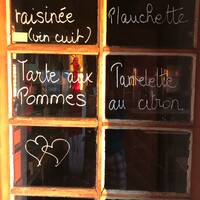 raisinée
(vin cuit)
Planchette
Tarte aux
Pommes
Tartelette
au citron